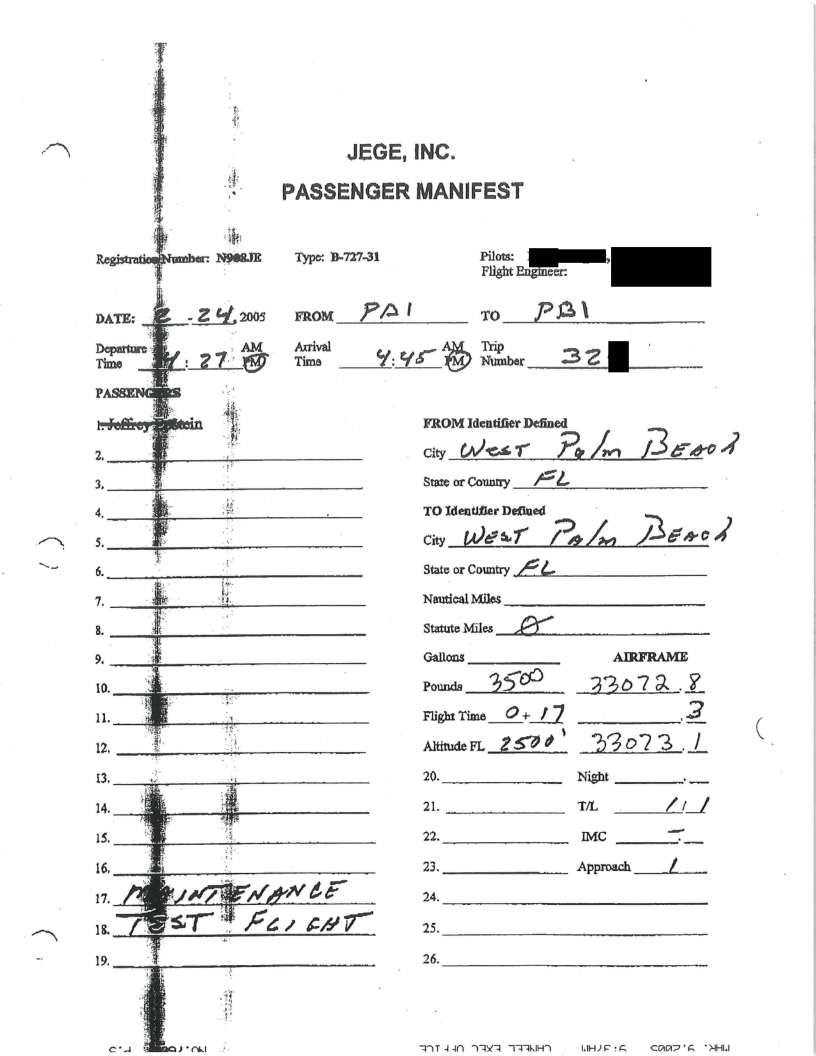 JEGE, INC.
PASSENGER MANIFEST
Registration Number: N908JE Type: B-727-31 Pilots: ,
Flight Engineer:
DATE: 2 - 24, 2005 FROM PBI TO PBI
Departure Time 4:27 AM PM Arrival Time 4:45 AM PM Trip Number 32
PASSENGERS
1. Jeffrey Epstein
2.
3.
4.
5.
6.
7.
8.
9.
10.
11.
12.
13.
14.
15.
16.
17. MAINTENANCE
18. TEST FLIGHT
19.
FROM Identifier Defined
City WEST Palm BEACH
State or Country FL
TO Identifier Defined
City WEST PAlm BEACH
State or Country FL
Nautical Miles
Statute Miles 0
Gallons AIRFRAME
Pounds 3500 33072.8
Flight Time 0+17 .3
Altitude FL 2500' 33073.1
20. Night .
21. T/L 1/1
22. IMC -.
23. Approach 1
24.
25.
26.
MAR. 9.2005 9:37AM CHNEEL EXEC OFFICE